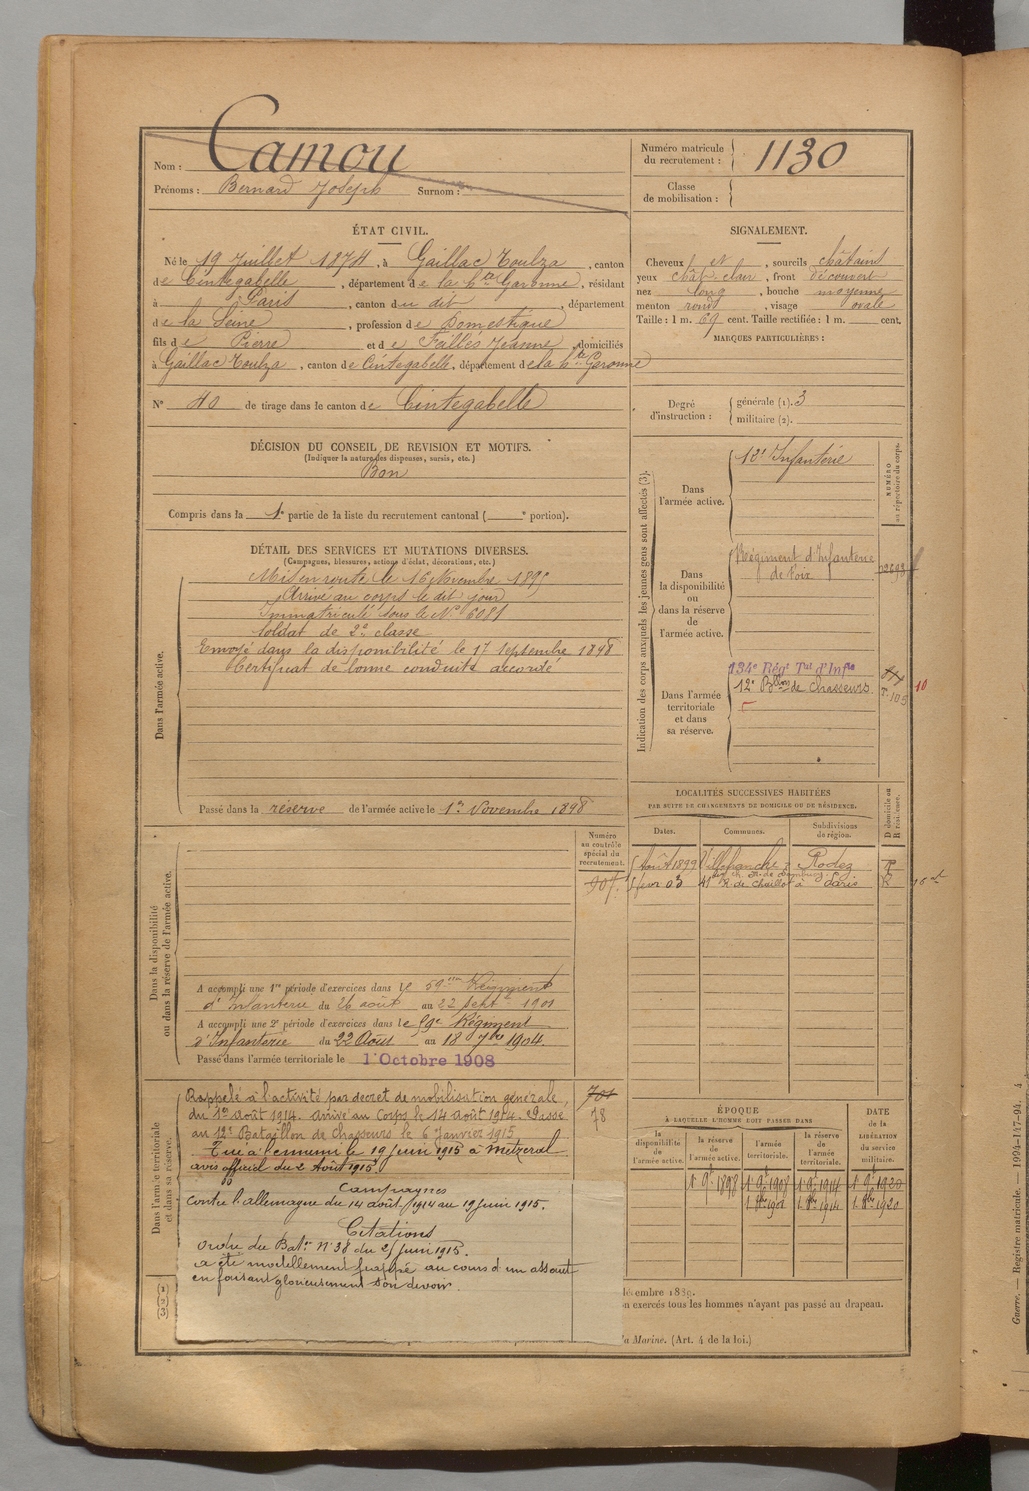 Nom : Camou
Prénoms : Bernard Joseph Surnom :
Numéro matricule du recrutement : 1130
Classe de mobilisation :
ÉTAT CIVIL.
Né le 19 Juillet 1874, à Gaillac Toulza, canton
de Cintegabelle, département de la hte Garonne, résidant
à Paris, canton du dit, département
de la Seine, profession de Domestique
fils de Pierre et de Faillés Jeanne, domiciliés
à Gaillac Toulza, canton de Cintegabelle, département de la hte Garonne
N° 40 de tirage dans le canton de Cintegabelle
SIGNALEMENT.
Cheveux et, sourcils châtains
yeux chât. clair, front découvert
nez long, bouche moyenne
menton rond, visage ovale
Taille : 1 m. 69 cent. Taille rectifiée : 1 m. cent.
MARQUES PARTICULIÈRES :
Degré d'instruction : générale (1). 3
militaire (2).
DÉCISION DU CONSEIL DE REVISION ET MOTIFS.
(Indiquer la nature des dispenses, sursis, etc.)
Bon
Compris dans la 1e partie de la liste du recrutement cantonal ( e portion).
DÉTAIL DES SERVICES ET MUTATIONS DIVERSES.
(Campagnes, blessures, actions d'éclat, décorations, etc.)
Dans l'armée active.
Mis en route le 16 Novembre 1895
Arrivé au corps le dit jour
Immatriculé sous le N° 6081
Soldat de 2e classe
Envoyé dans la disponibilité le 17 Septembre 1898
Certificat de bonne conduite accordé
Passé dans la réserve de l'armée active le 1er Novembre 1898
Indication des corps auxquels les jeunes gens sont affectés (3).
NUMÉRO au répertoire du corps.
Dans l'armée active.
12e Infanterie
Dans la disponibilité ou dans la réserve de l'armée active.
Régiment d'Infanterie
de Foix
Dans l'armée territoriale et dans sa réserve.
134e Régt Tal d'Infie
12e Bllon de Chasseurs
T. 105
10
LOCALITÉS SUCCESSIVES HABITÉES
PAR SUITE DE CHANGEMENTS DE DOMICILE OU DE RÉSIDENCE.
Dates. Communes. Subdivisions de région. D domicile ou R résidence.
Août 1899 Villefranche Rodez R
03 41 R. de Chaillot à Paris R
Numéro au contrôle spécial du recrutement.
Dans la disponibilité ou dans la réserve de l'armée active.
A accompli une 1re période d'exercices dans le 59eme Régiment
d'Infanterie du 26 août au 22 Sept 1901
A accompli une 2e période d'exercices dans le 59e Régiment
d'Infanterie du 22 Août au 18 7bre 1904.
Passé dans l'armée territoriale le 1er Octobre 1908
Dans l'armée territoriale et dans sa réserve.
Rappelé à l'activité par decret de mobilisation générale,
du 1er août 1914. arrivé au Corps le 14 août 1914. Passé
au 12e Bataillon de Chasseurs le 6 Janvier 1915
Tué à l'ennemi le 19 juin 1915 à Metzeral
avis officiel du 2 Août 1915
701
78
Campagnes
Contre l'allemagne du 14 août 1914 au 19 juin 1915.
Citations
Ordre du Baton N° 38 du 25 juin 1915.
a été mortellement frappé au cours d'un assaut
en faisant glorieusement son devoir.
ÉPOQUE
À LAQUELLE L'HOMME DOIT PASSER DANS
la disponibilité de l'armée active.
la réserve de l'armée active.
l'armée territoriale.
la réserve de l'armée territoriale.
DATE de la LIBÉRATION du service militaire.
1 9 1898 1 9 1908 1 9 1914 1 9 1920
1 8bre 1908 1 8bre 1914 1 8bre 1920
décembre 1889.
n exercés tous les hommes n'ayant pas passé au drapeau.
la Marine. (Art. 4 de la loi.)
Guerre. — Registre matricule. — 1994-147-94.